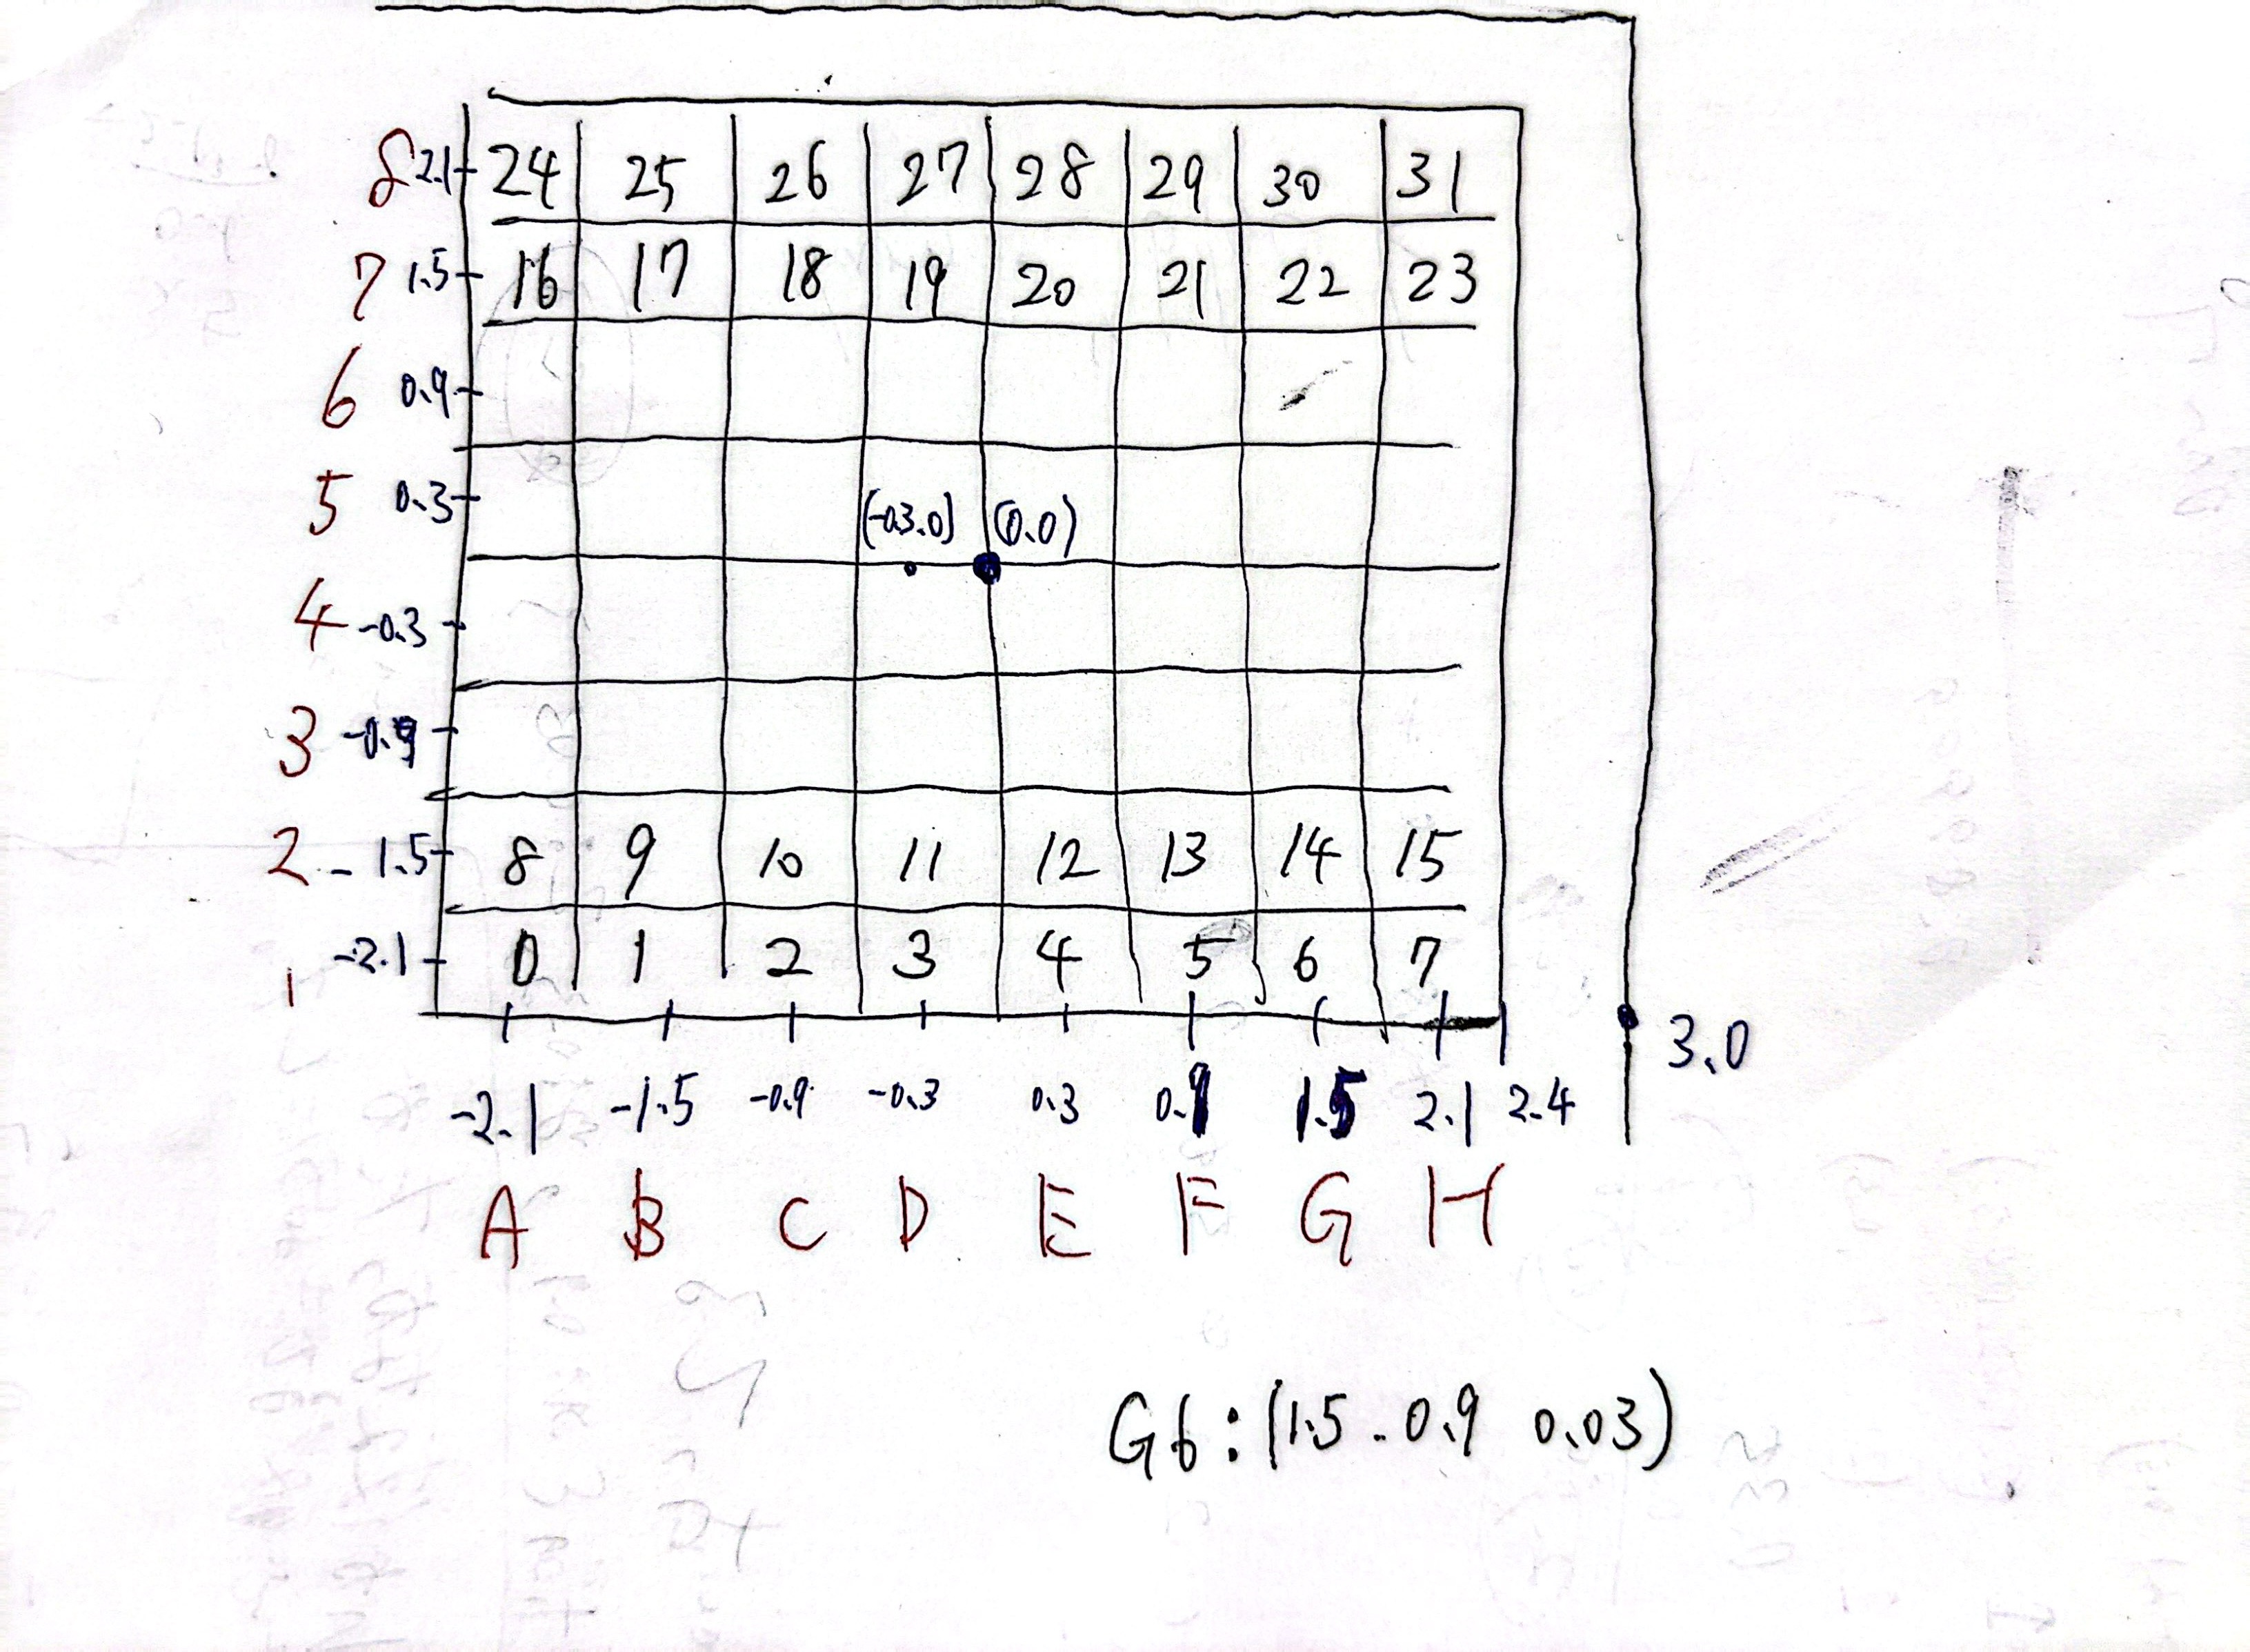 8 2.1 24 25 26 27 28 29 30 31
7 1.5 16 17 18 19 20 21 22 23
6 0.9
5 0.3
(-0.3.0) (0.0)
4 -0.3
3 -0.9
2 -1.5 8 9 10 11 12 13 14 15
1 -2.1 0 1 2 3 4 5 6 7
3.0
-2.1 -1.5 -0.9 -0.3 0.3 0.9 1.5 2.1 2.4
A B C D E F G H
G6:(1.5.0.9 0.03)